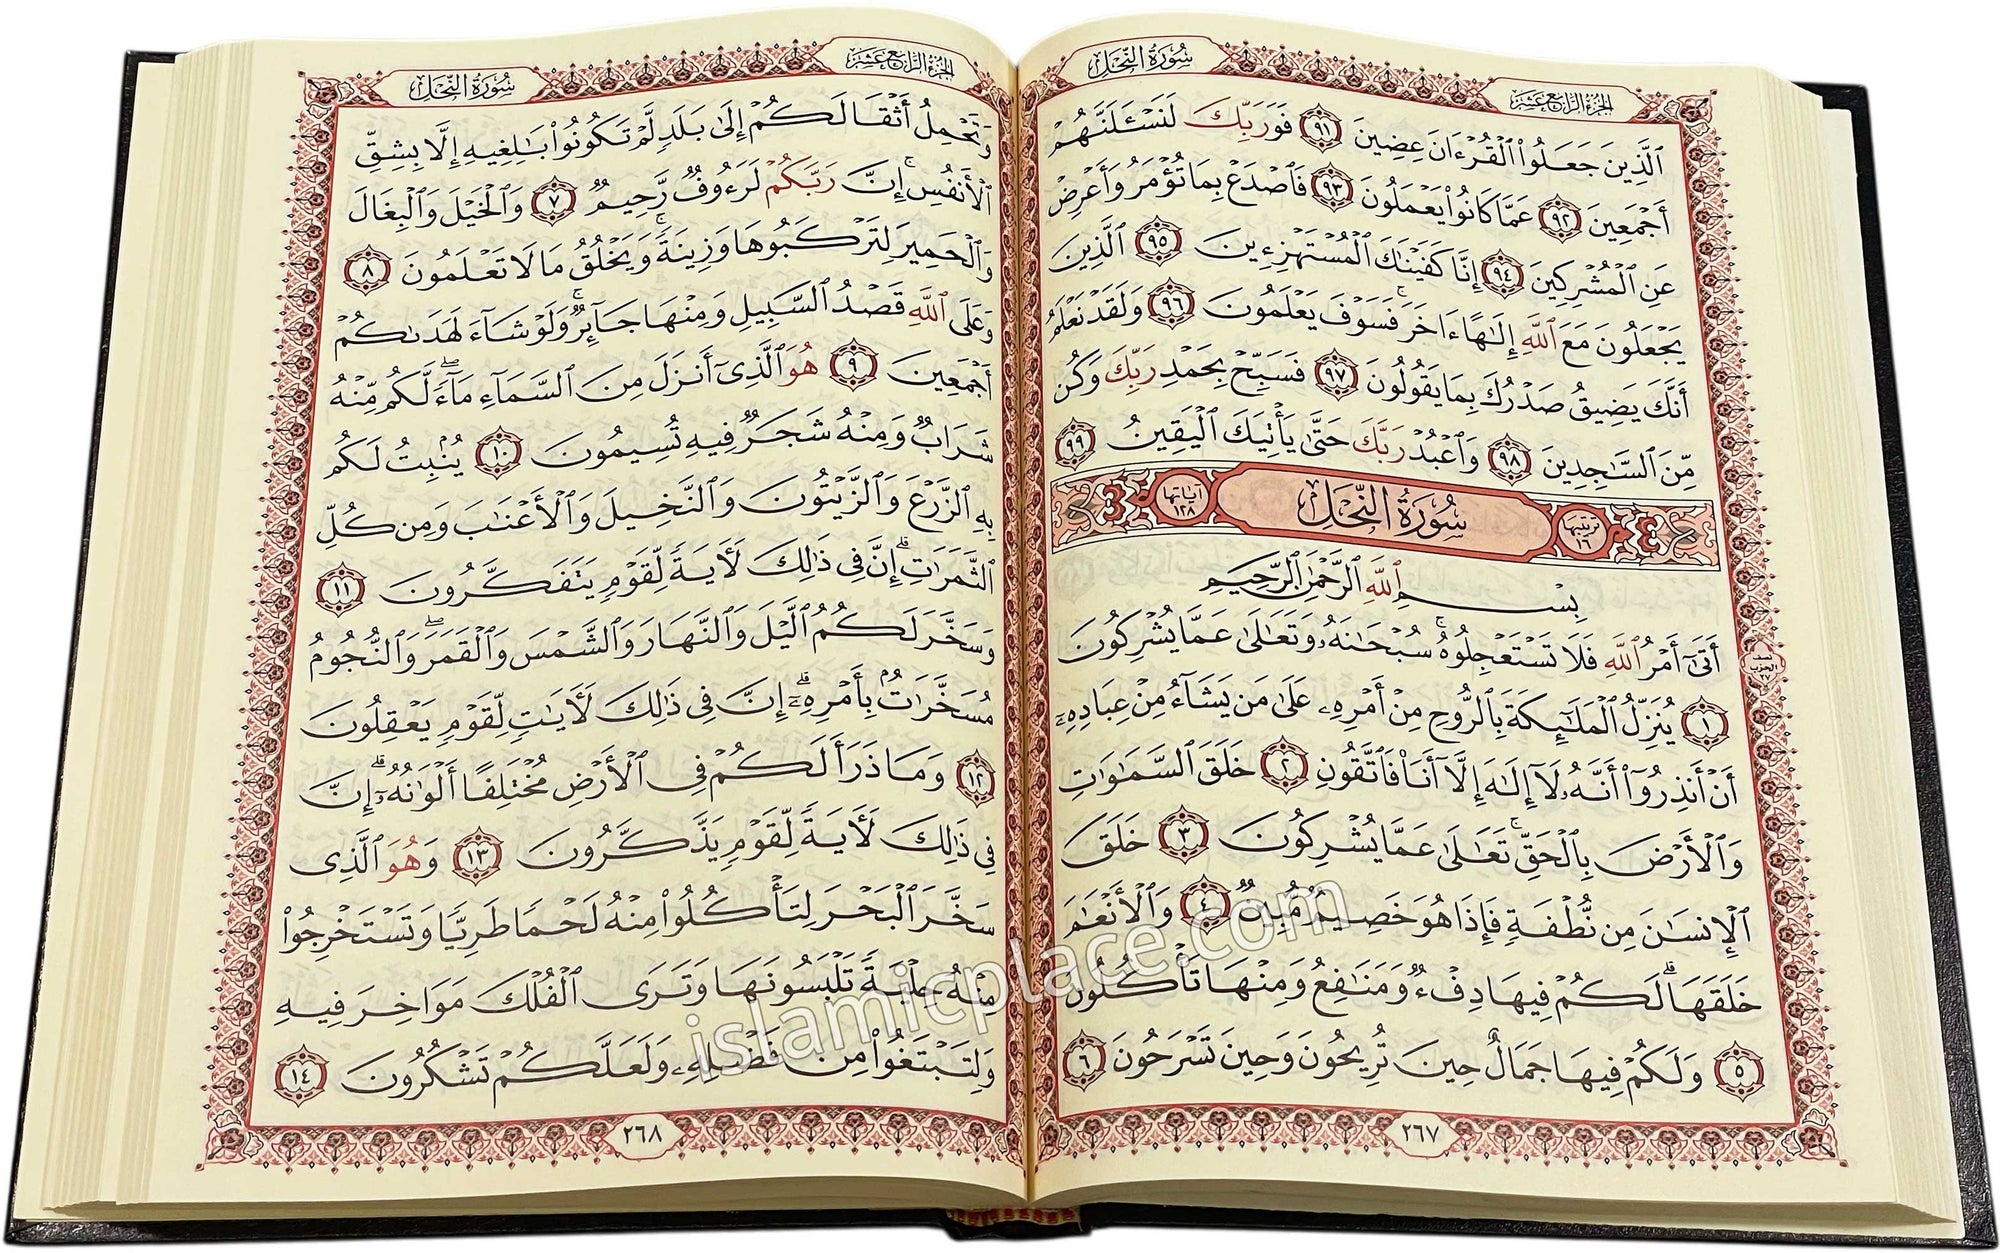 سُورَةُ النَّحْلِ الجُزْءُ الرَّابِعَ عَشَرَ
ٱلَّذِينَ جَعَلُوا۟ ٱلْقُرْءَانَ عِضِينَ ٩١ فَوَرَبِّكَ لَنَسْـَٔلَنَّهُمْ
أَجْمَعِينَ ٩٢ عَمَّا كَانُوا۟ يَعْمَلُونَ ٩٣ فَٱصْدَعْ بِمَا تُؤْمَرُ وَأَعْرِضْ
عَنِ ٱلْمُشْرِكِينَ ٩٤ إِنَّا كَفَيْنَٰكَ ٱلْمُسْتَهْزِءِينَ ٩٥ ٱلَّذِينَ
يَجْعَلُونَ مَعَ ٱللَّهِ إِلَٰهًا ءَاخَرَ ۚ فَسَوْفَ يَعْلَمُونَ ٩٦ وَلَقَدْ نَعْلَمُ
أَنَّكَ يَضِيقُ صَدْرُكَ بِمَا يَقُولُونَ ٩٧ فَسَبِّحْ بِحَمْدِ رَبِّكَ وَكُن
مِّنَ ٱلسَّٰجِدِينَ ٩٨ وَٱعْبُدْ رَبَّكَ حَتَّىٰ يَأْتِيَكَ ٱلْيَقِينُ ٩٩
ترتيبها ١٦ سُورَةُ النَّحْلِ آياتها ١٢٨
بِسْمِ ٱللَّهِ ٱلرَّحْمَٰنِ ٱلرَّحِيمِ
أَتَىٰٓ أَمْرُ ٱللَّهِ فَلَا تَسْتَعْجِلُوهُ ۚ سُبْحَٰنَهُۥ وَتَعَٰلَىٰ عَمَّا يُشْرِكُونَ
نصف الحزب ٢٧
١ يُنَزِّلُ ٱلْمَلَٰٓئِكَةَ بِٱلرُّوحِ مِنْ أَمْرِهِۦ عَلَىٰ مَن يَشَآءُ مِنْ عِبَادِهِۦٓ
أَنْ أَنذِرُوٓا۟ أَنَّهُۥ لَآ إِلَٰهَ إِلَّآ أَنَا۠ فَٱتَّقُونِ ٢ خَلَقَ ٱلسَّمَٰوَٰتِ
وَٱلْأَرْضَ بِٱلْحَقِّ ۚ تَعَٰلَىٰ عَمَّا يُشْرِكُونَ ٣ خَلَقَ
ٱلْإِنسَٰنَ مِن نُّطْفَةٍ فَإِذَا هُوَ خَصِيمٌ مُّبِينٌ ٤ وَٱلْأَنْعَٰمَ
خَلَقَهَا ۗ لَكُمْ فِيهَا دِفْءٌ وَمَنَٰفِعُ وَمِنْهَا تَأْكُلُونَ
٥ وَلَكُمْ فِيهَا جَمَالٌ حِينَ تُرِيحُونَ وَحِينَ تَسْرَحُونَ ٦
٢٦٧
الجُزْءُ الرَّابِعَ عَشَرَ سُورَةُ النَّحْلِ
وَتَحْمِلُ أَثْقَالَكُمْ إِلَىٰ بَلَدٍ لَّمْ تَكُونُوا۟ بَٰلِغِيهِ إِلَّا بِشِقِّ
ٱلْأَنفُسِ ۚ إِنَّ رَبَّكُمْ لَرَءُوفٌ رَّحِيمٌ ٧ وَٱلْخَيْلَ وَٱلْبِغَالَ
وَٱلْحَمِيرَ لِتَرْكَبُوهَا وَزِينَةً ۚ وَيَخْلُقُ مَا لَا تَعْلَمُونَ ٨
وَعَلَى ٱللَّهِ قَصْدُ ٱلسَّبِيلِ وَمِنْهَا جَآئِرٌ ۚ وَلَوْ شَآءَ لَهَدَىٰكُمْ
أَجْمَعِينَ ٩ هُوَ ٱلَّذِىٓ أَنزَلَ مِنَ ٱلسَّمَآءِ مَآءً ۖ لَّكُم مِّنْهُ
شَرَابٌ وَمِنْهُ شَجَرٌ فِيهِ تُسِيمُونَ ١٠ يُنۢبِتُ لَكُم
بِهِ ٱلزَّرْعَ وَٱلزَّيْتُونَ وَٱلنَّخِيلَ وَٱلْأَعْنَٰبَ وَمِن كُلِّ
ٱلثَّمَرَٰتِ ۗ إِنَّ فِى ذَٰلِكَ لَءَايَةً لِّقَوْمٍ يَتَفَكَّرُونَ ١١
وَسَخَّرَ لَكُمُ ٱلَّيْلَ وَٱلنَّهَارَ وَٱلشَّمْسَ وَٱلْقَمَرَ ۖ وَٱلنُّجُومُ
مُسَخَّرَٰتٌۢ بِأَمْرِهِۦٓ ۗ إِنَّ فِى ذَٰلِكَ لَءَايَٰتٍ لِّقَوْمٍ يَعْقِلُونَ
١٢ وَمَا ذَرَأَ لَكُمْ فِى ٱلْأَرْضِ مُخْتَلِفًا أَلْوَٰنُهُۥٓ ۗ إِنَّ
فِى ذَٰلِكَ لَءَايَةً لِّقَوْمٍ يَذَّكَّرُونَ ١٣ وَهُوَ ٱلَّذِى
سَخَّرَ ٱلْبَحْرَ لِتَأْكُلُوا۟ مِنْهُ لَحْمًا طَرِيًّا وَتَسْتَخْرِجُوا۟
مِنْهُ حِلْيَةً تَلْبَسُونَهَا وَتَرَى ٱلْفُلْكَ مَوَاخِرَ فِيهِ
وَلِتَبْتَغُوا۟ مِن فَضْلِهِۦ وَلَعَلَّكُمْ تَشْكُرُونَ ١٤
٢٦٨
islamicplace.com